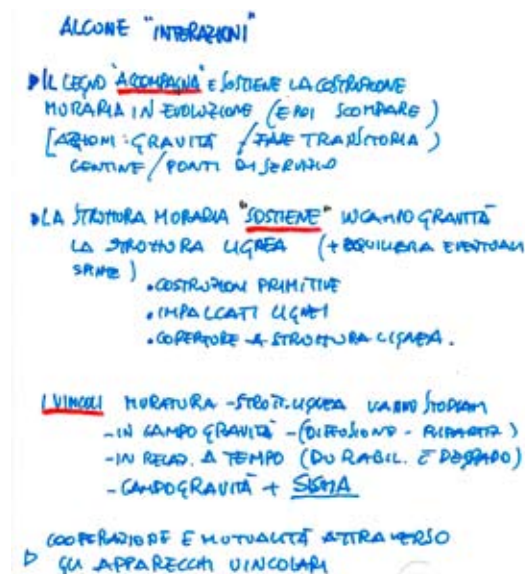 ALCUNE "INTERAZIONI"
IL LEGNO "ACCOMPAGNA" E SOSTIENE LA COSTRUZIONE
MURARIA IN EVOLUZIONE (E POI SCOMPARE)
[AZIONI: GRAVITÀ / FASE TRANSITORIA)
CENTINE / PONTI DI SERVIZIO
LA STRUTTURA MURARIA "SOSTIENE" IN CAMPO GRAVITÀ
LA STRUTTURA LIGNEA (+ EQUILIBRA EVENTUALI
SPINTE)
• COSTRUZIONI PRIMITIVE
• IMPALCATI LIGNEI
• COPERTURE A STRUTTURA LIGNEA.
I VINCOLI MURATURA - STRUTT. LIGNEA VANNO STUDIATI
- IN CAMPO GRAVITÀ - (DIFFUSIONE - RIPARTIZ)
- IN RELAZ. A TEMPO (DURABIL. E DEGRADO)
- CAMPO GRAVITÀ + SISMA
COOPERAZIONE E MUTUALITÀ ATTRAVERSO
GLI APPARECCHI VINCOLARI